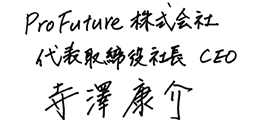 ProFuture 株式会社
代表取締役社長 CEO
寺澤 康介